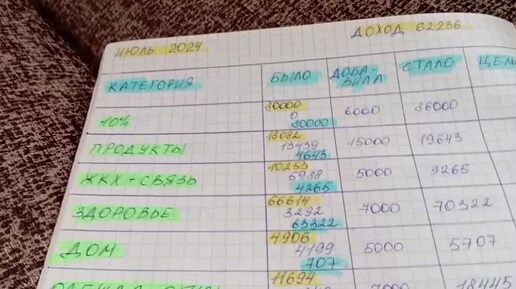 ИЮЛЬ 2024 ДОХОД 62236
КАТЕГОРИЯ БЫЛО ДОБА- СТАЛО ЦЕЛЬ
ВИЛА
30000
10% 0 6000 36000
30000
18082
ПРОДУКТЫ 13439 15000 19643
4643
10253
ЖКХ+СВЯЗЬ 5988 5000 9265
4265
66614
ЗДОРОВЬЕ 3292 7000 70322
63322
4906
ДОМ 4199 5000 5707
707
11694
7000 18445